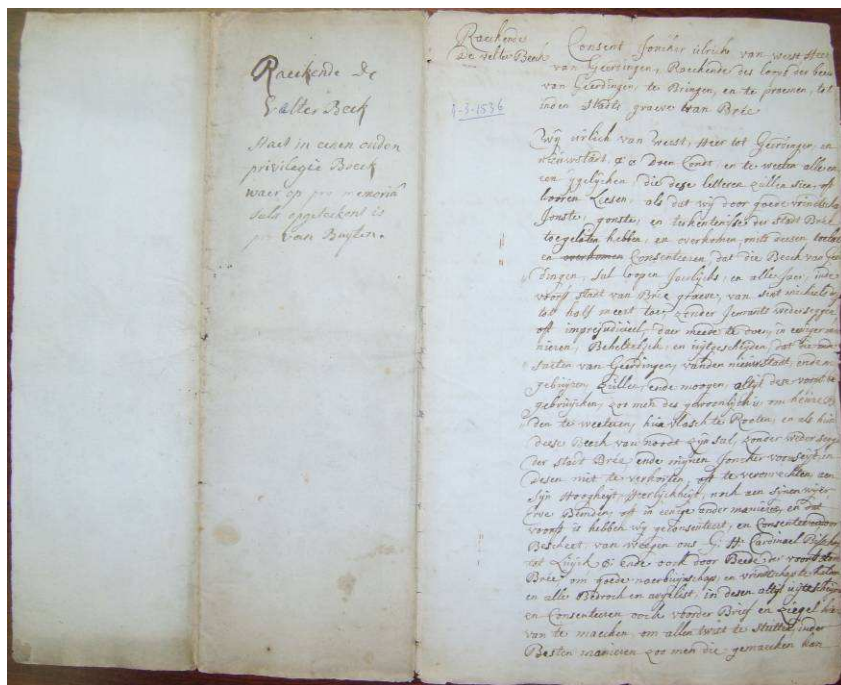 Raeckende De
Zalter Beek
Staet in eenen ouden
privilegie Boeck
waer op pro memoria
sulx opgeteekent is
van Buyten.
Raeckende
De Zelter Beeck
4-3-1536
Consent Joncker ulrichs van weest Heer
van Geerdingen, Raeckende des loops der beeck
van Geerdingen, te Bringen, en te
inden Stadts graeve van Brée
Wij ulrich van weest, Heer tot Geerdingen, en
Nieuwstadt, doen Condt, en te weeten alle en
een ygelijcken, die dese letteren zullen sien, oft
hooren Leesen, als dat wij door goede vrindtschap
Jonste, gonste, en der Stadt Brée
toegelaten hebben, en overkomen, mits deesen toelaeten
en overkomen Consenteeren, dat die Beeck van Geer
dingen, sal loopen Jaerlijckx, en alle Jaer, inde
voors Stadt van Brée graeve, van sint michiels
tot half meert toe, zonder Jemants wederseggen
oft daer meede te doen, in eeniger ma
nieren, Beheltelijck, en uytgescheyden, dat die
saeten van Geerdingen, vander nieuwstadt, ende
gebuijren, zullen, ende moogen, altijt dese voors
gebruijcken, zoo men des gewoonlijck is, om
den te weeteren, hun vlasch te Rooten, en als hun
deese Beeck van noodt zijn sal, zonder wederseggen
der Stadt Brée, ende mijnen Joncker voorseyt, in
desen niet te verkorten, oft te aen
sijn Hoogheijt, Heerlijckheijt, noch aen sijnen
Bemden, oft in eenige ander manieren, en dat
voors is hebben wij geconsenteert, en Consenteeren
Bescheet van weegen ons G. Hr Cardinael Bisschop
tot Luijck &: Ende oock door Beede der voors Stadt
Brée, om goede naerbuijrschap, en vrindtschap te halden
en alle Bedroch en argelist, in desen altijt uijtescheijden
en Consenteeren oock voorder Brief en Ziegel hier
van te maecken, om allen twist te Stutten, inder
Besten manieren zoo men die gemaecken kan